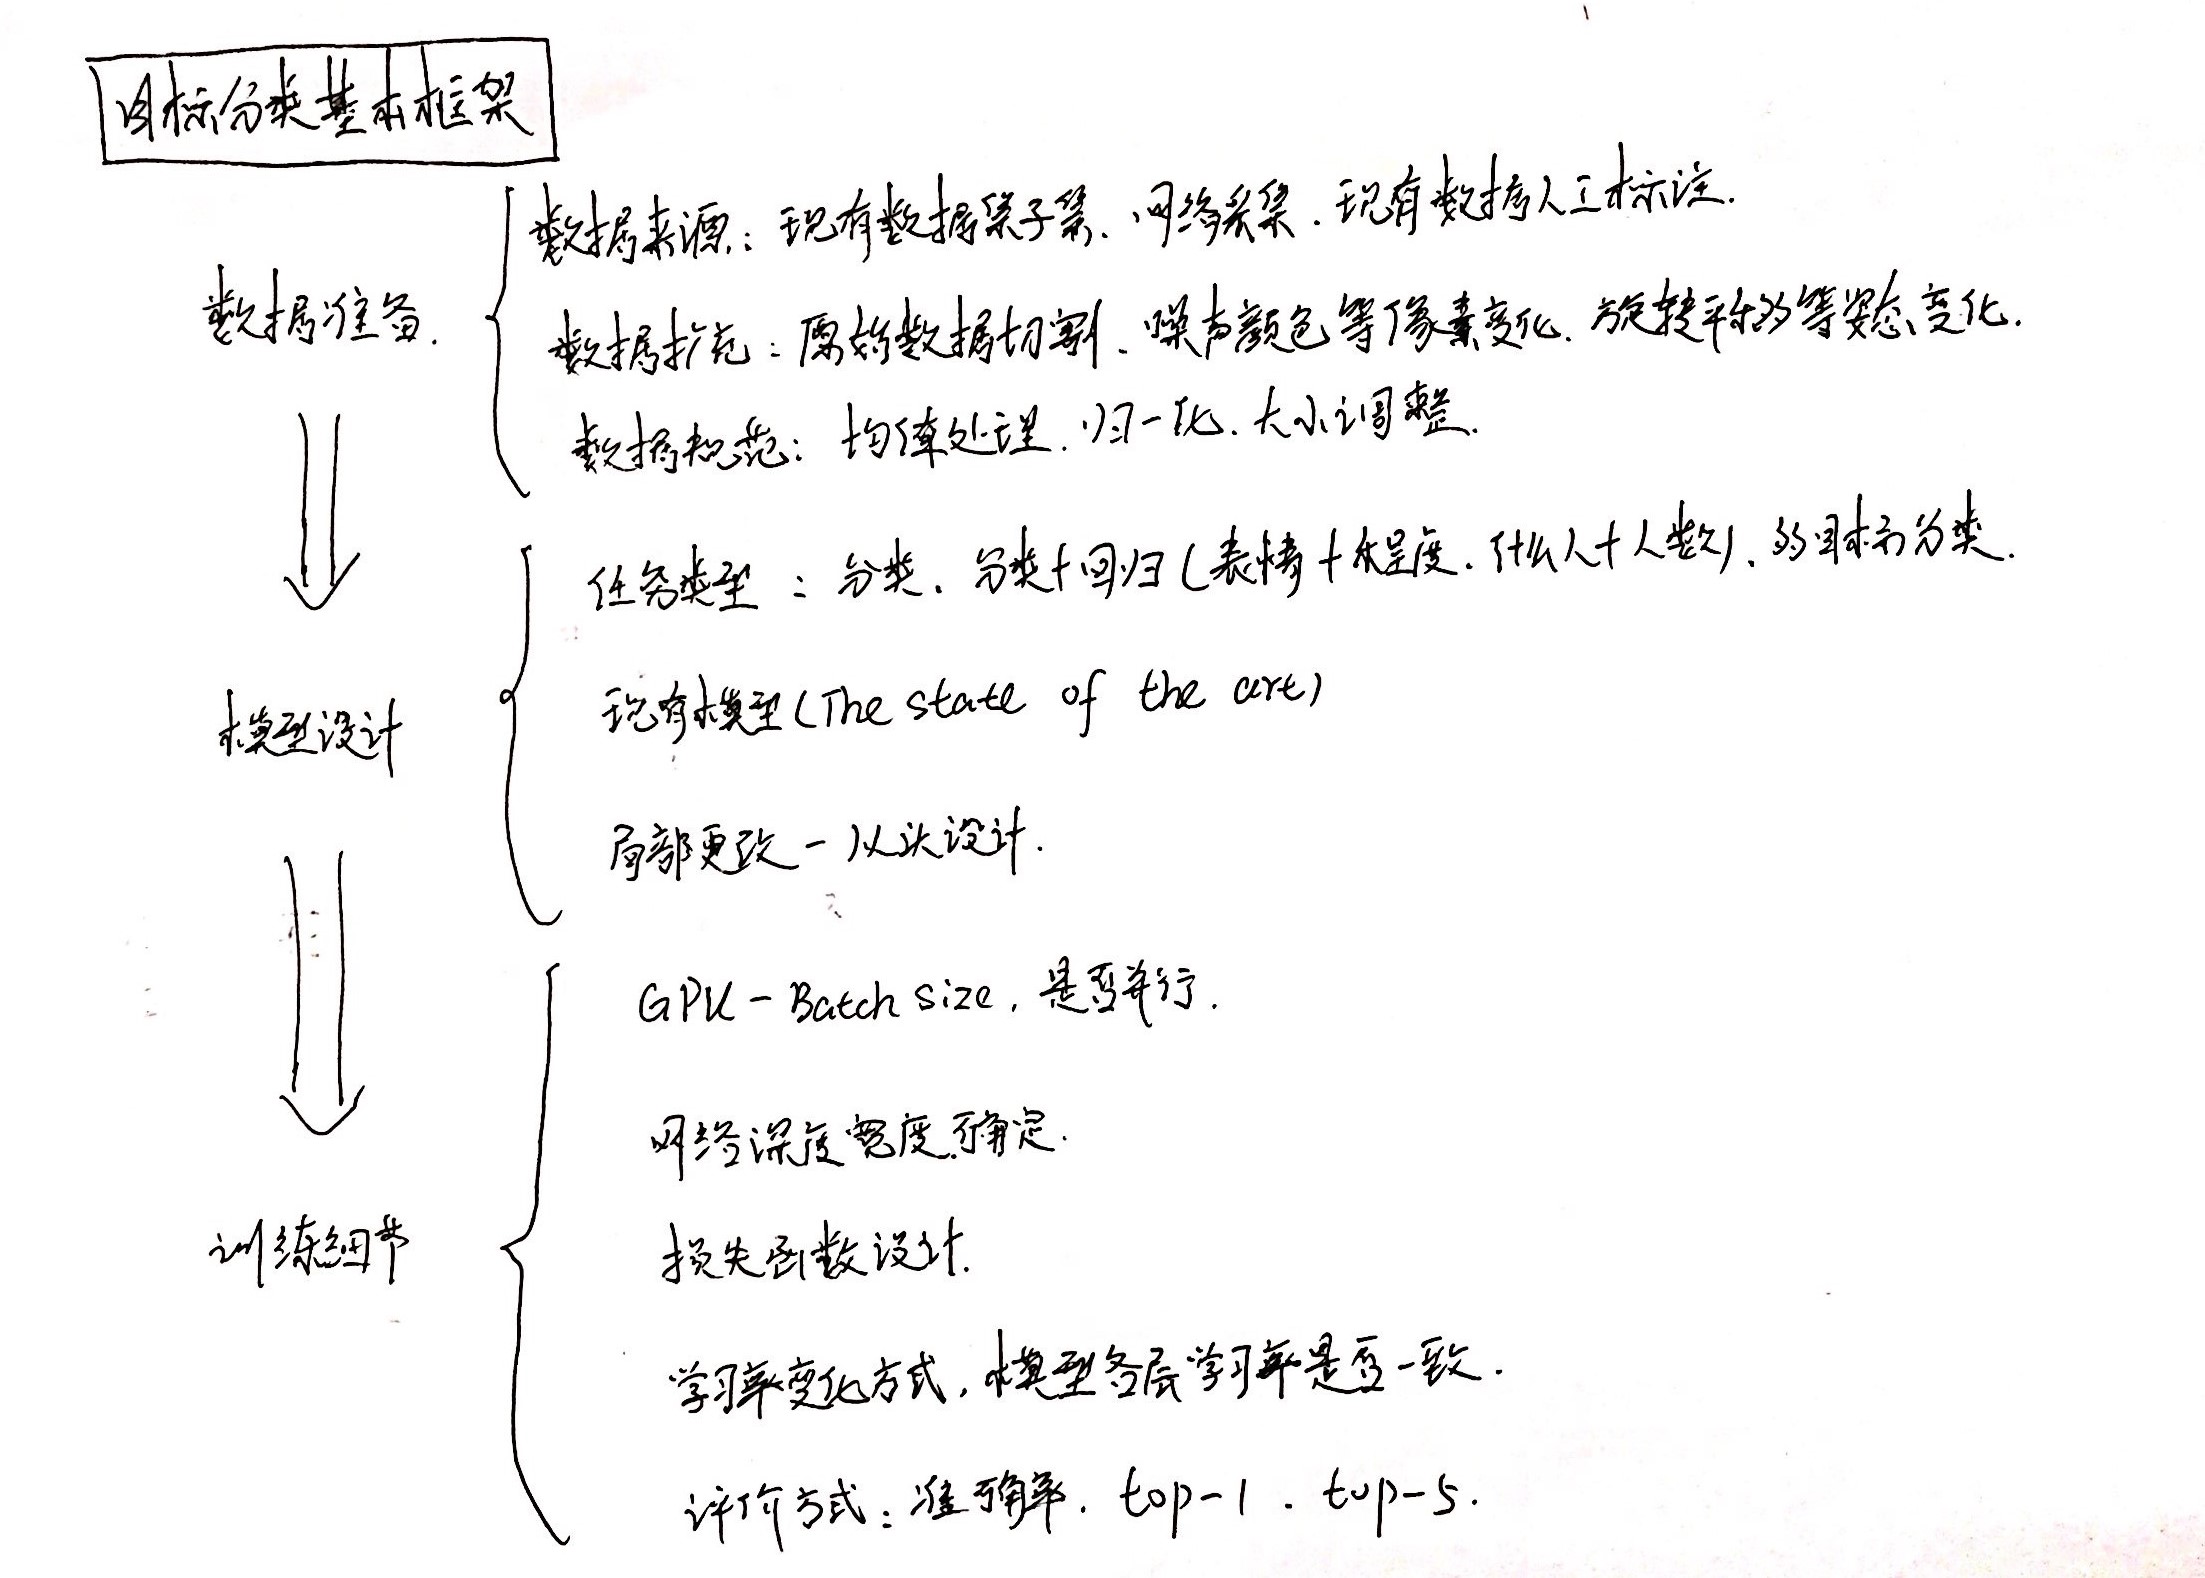 目标分类基本框架
数据来源：现有数据集子集、网络采集、现有数据人工标注.
数据准备.
数据扩充：原始数据切割、噪声颜色等像素变化、旋转平移等姿态变化.
数据规范：均值处理、归一化、大小调整.
任务类型：分类、分类+回归(表情+程度、什么人+人数)、多目标分类.
现有模型(The state of the art)
模型设计
局部更改-从头设计.
GPU-Batch size,是否并行.
网络深度宽度确定.
训练细节
损失函数设计.
学习率变化方式,模型各层学习率是否一致.
评价方式:准确率、top-1、top-5.